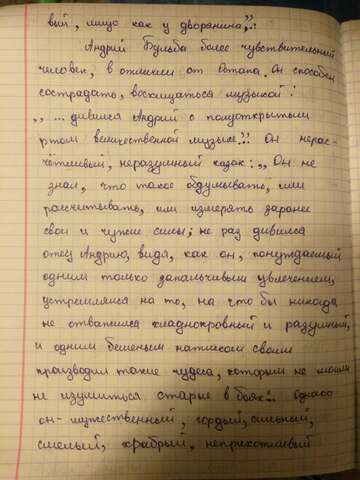 вый, лицо как у дворянина,,.
Андрий Бульба более чувствительный
человек, в отличии от Остапа. Он способен
сострадать, восхищаться музыкой:
,, ... дивился Андрий с полуоткрытым
ртом величественной музыке". Он нерас-
чётливый, неразумный казак: ,, Он не
знал, что такое обдумывать, или
рассчитывать, или измерять заранее
свои и чужие силы; не раз дивился
отец Андрию, видя, как он, понуждаемый
одним только запальчивым увлечением,
устремлялся на то, на что бы никогда
не отважился хладнокровный и разумный,
и одним бешеным натиском своим
производил такие чудеса, которым не могли
не изумиться старые в боях". Однако
он- мужественный, гордый, сильный,
смелый, храбрый, неприхотливый